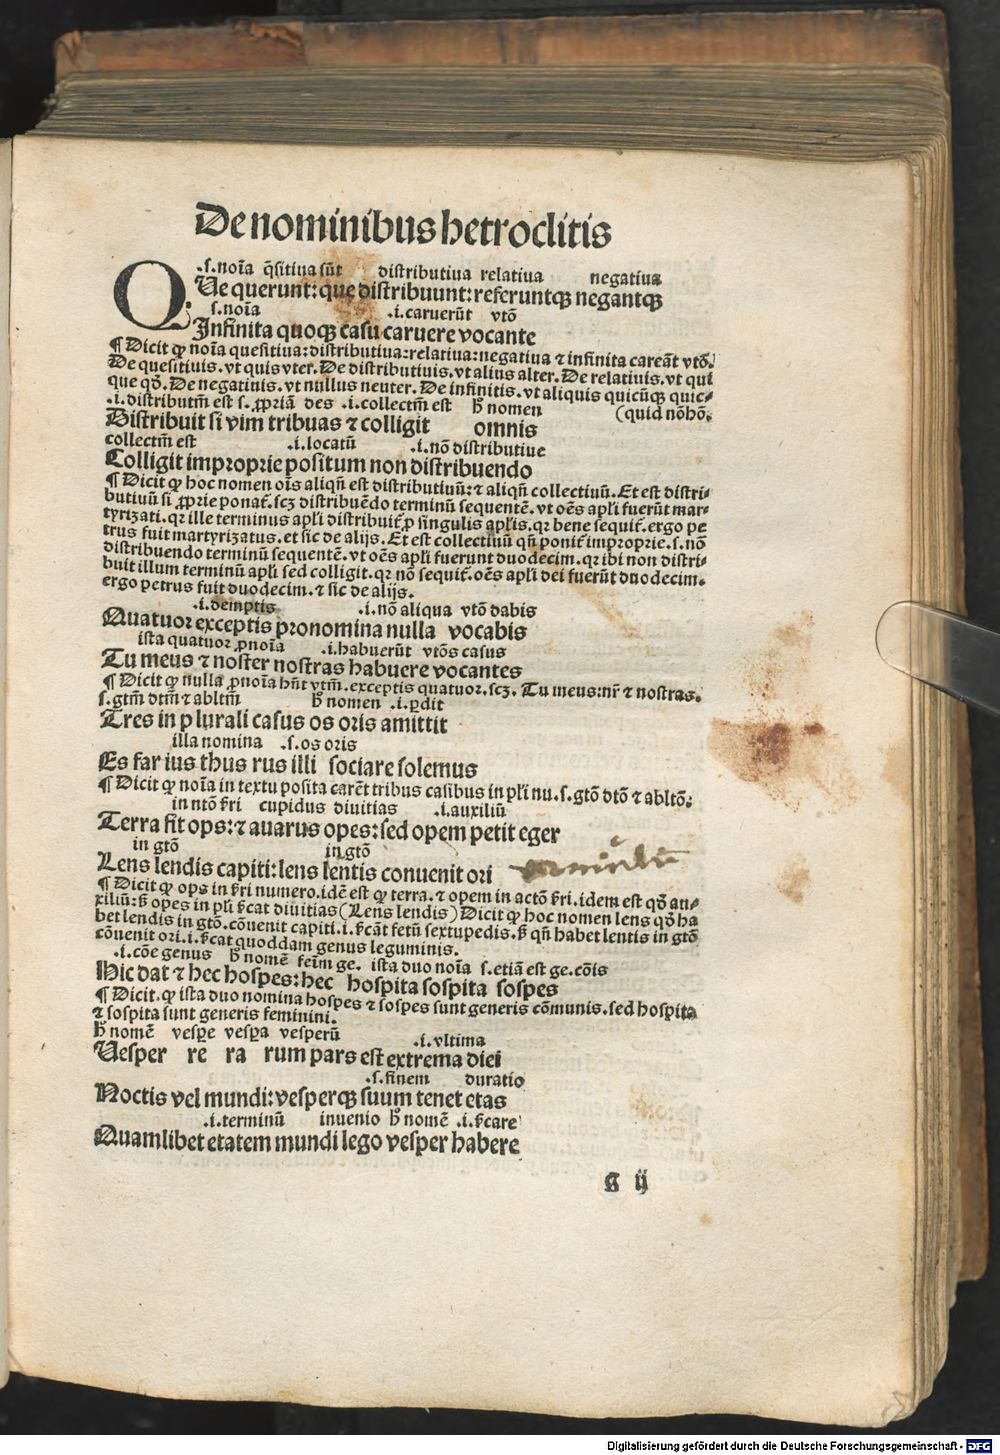 De nominibus hetroclitis
.s.noīa q̄sitiua sūt distributiua relatiua negatiua
QUe querunt: que distribuunt: referuntqꝫ negantqꝫ
s.noīa .i.caruerūt vtō
Infinita quoqꝫ casu caruere vocante
¶ Dicit ꝙ noīa quesitiua: distributiua: relatiua: negatiua ⁊ infinita careāt vtō.
De quesitiuis. vt quis vter. De distributiuis. vt alius alter. De relatiuis. vt qui
que qō. De negatiuis. vt nullus neuter. De infinitis. vt aliquis quicūqꝫ quic⸗
.i.distributm̄ est s. ꝓpriā des .i.collectm̄ est h̄ nomen (quid nōhō.
Distribuit si vim tribuas ⁊ colligit omnis
collectm̄ est .i.locatū .i.nō distributiue
Colligit improprie positum non distribuendo
¶ Dicit ꝙ hoc nomen oīs aliqn̄ est distributiuū: ⁊ aliqn̄ collectiuū. Et est distri⸗
butiuū si ꝓprie ponat̄. scꝫ distribuēdo terminū sequentē. vt oēs apl̄i fuerūt mar⸗
tyrizati. qꝛ ille terminus apl̄i distribuit̄ ꝓ singulis apl̄is. qꝛ bene sequit̄. ergo pe
trus fuit martyrizatus. et sic de alijs. Et est collectiuū qn̄ ponit̄ improprie. s. nō
distribuendo terminū sequentē. vt oēs apl̄i fuerunt duodecim. qꝛ ibi non distri⸗
buit illum terminū apl̄i sed colligit. qꝛ nō sequit̄. oēs apl̄i dei fuerūt duodecim.
ergo petrus fuit duodecim. ⁊ sic de alijs.
.i.demptis .i.nō aliqua vtō dabis
Quatuor exceptis pronomina nulla vocabis
ista quatuor ꝓnoīa .i.habuerūt vtōs casus
Tu meus ⁊ noster nostras habuere vocantes
¶ Dicit ꝙ nulla ꝓnoīa hn̄t vtm̄. exceptis quatuor. scꝫ. Tu meus: nr̄ ⁊ nostras.
s.gtm̄ dtm̄ ⁊ abltm̄ h̄ nomen .i.ꝑdit
Tres in plurali casus os oris amittit
illa nomina .s.os oris
Es far ius thus rus illi sociare solemus
¶ Dicit ꝙ noīa in textu posita carēt tribus casibus in pl̄i nu.s.gtō dtō ⁊ abltō.
in ntō sr̄i cupidus diuitias .i.auxiliū
Terra fit ops: ⁊ auarus opes: sed opem petit eger
in gtō in gtō
Lens lendis capiti: lens lentis conuenit ori
¶ Dicit ꝙ ops in sr̄i numero. idē est ꝙ terra. ⁊ opem in actō sr̄i. idem est qō au⸗
xiliū: s̄ opes in pl̄i s̄cat diuitias (Lens lendis) Dicit ꝙ hoc nomen lens qō ha
bet lendis in gtō. cōuenit capiti. i. s̄cāt fetū sextupedis. s̄ qn̄ habet lentis in gtō
cōuenit ori. i. s̄cat quoddam genus leguminis.
.i.cōe genus h̄ nomē feīm ge. ista duo noīa s.etiā est ge.cōis
Hic dat ⁊ hec hospes: hec hospita sospita sospes
¶ Dicit. ꝙ ista duo nomina hospes ⁊ sospes sunt generis cōmunis. sed hospita
⁊ sospita sunt generis feminini.
h̄ nomē vesꝑe vesꝑa vesperū .i.vltima
Uesper re ra rum pars est extrema diei
.s.finem duratio
Noctis vel mundi: vesperqꝫ suum tenet etas
.i.terminū inuenio h̄ nomē .i.s̄care
Quamlibet etatem mundi lego vesper habere
G ij
Digitalisierung gefördert durch die Deutsche Forschungsgemeinschaft - DFG